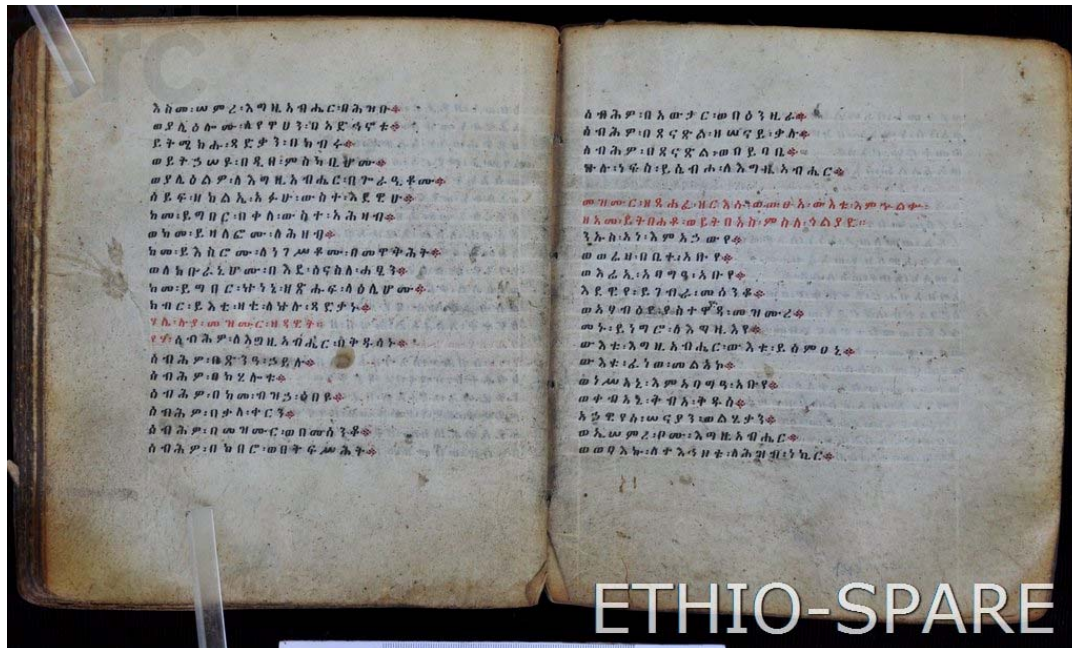 እስመ፡ሠምረ፡እግዚአብሔር፡በሕዝቡ።
ወያሌዕሎሙ፡ለየዋሃን፡በአድኅኖቱ።
ይትሜክሑ፡ጻድቃን፡በክብሩ።
ወይትኃሠዩ፡በዲበ፡ምስካቢሆሙ።
ወያሌዕልዎ፡ለእግዚአብሔር፡በጐራዒቶሙ።
ሰይፍ፡ዘክልኤ፡አፉሁ፡ውስተ፡እደዊሁ።
ከመ፡ይግበር፡በቀለ፡ውስተ፡አሕዛብ።
ወከመ፡ይዘለፎሙ፡ለሕዘብ።
ከመ፡ይእስሮሙ፡ለነገሥቶሙ፡በመዋቅሕት።
ወለክቡራኒሆሙ፡በእደ፡ሰናስለ፡ሐፂን።
ከመ፡ይግበር፡ኵነኔ፡ዘጽሑፍ፡ላዕሌሆሙ።
ክብር፡ይእቲ፡ዛቲ፡ለኵሉ፡ጻድቃኑ።
ሃሌ፡ሉያ፡መዝሙር፡ዘዳዊት።
ሰብሕዎ፡ለእግዚአብሔር፡በቅዱሳኑ።
ሰብሕዎ፡በጽንዓ፡ኃይሉ።
ሰብሕዎ፡በክሂሎቱ።
ሰብሕዎ፡በከመ፡ብዝኃ፡ዕበዩ።
ሰብሕዎ፡በቃለ፡ቀርን።
ሰብሕዎ፡በመዝሙር፡ወበመሰንቆ።
ሰብሕዎ፡በከበሮ፡ወበትፍሥሕት።
ሰብሕዎ፡በአውታር፡ወበዕንዚራ።
ሰብሕዎ፡በጸናጽል፡ዘሠናይ፡ቃሉ።
ሰብሕዎ፡በጸናጽል፡ወበይባቤ።
ኵሉ፡ነፍስ፡ይሴብሖ፡ለእግዚአብሔር።
መዝሙር፡ዘጸሐፈ፡ዘርእሱ፡ወውፁእ፡ውእቱ፡እምኍልቍ፡
ዘአመ፡ይትበሐቶ፡ወይትበአስ፡ምስለ፡ጎልያድ።
ንኡስ፡አነ፡እምአኃውየ።
ወወሬዛ፡በቤተ፡አቡየ።
ወእሬኢ፡አባግዓ፡አቡየ።
እደዊየ፡ይገብራ፡መሰንቆ።
ወአፃብዕየ፡ያስተዋድዳ፡መዝሙረ።
መኑ፡ይነግሮ፡ለእግዚእየ።
ውእቱ፡እግዚአብሔር፡ውእቱ፡ይሰምዐኒ።
ውእቱ፡ፈነወ፡መልአኮ።
ወነሥአኒ፡እምአባግዓ፡አቡየ።
ወቀብአኒ፡ቅብአ፡ቅዱስ።
አኃዊየሰ፡ሠናያን፡ወልሂቃን።
ወኢሠምረ፡ቦሙ፡እግዚአብሔር።
ወወፃእኩ፡ለተእኅዘቱ፡ለሕዝብ፡ነኪር።
ETHIO-SPARE